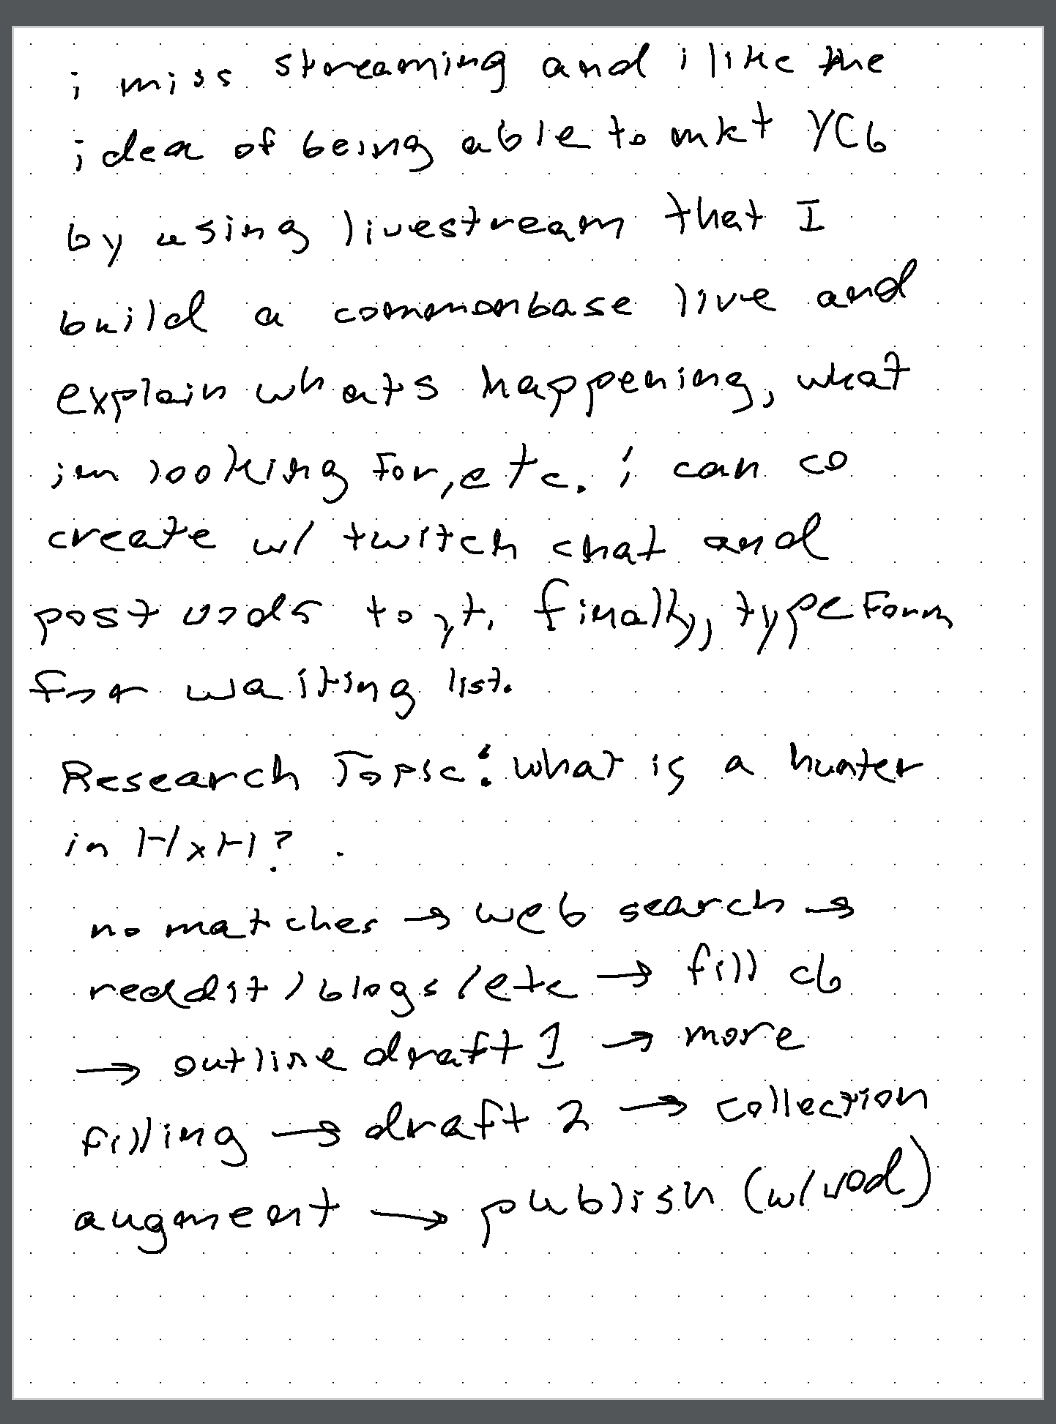 i miss streaming and i like the
idea of being able to mkt YCb
by using livestream that I
build a commonbase live and
explain whats happening, what
im looking for, etc. i can co
create w/ twitch chat and
post vods to yt. finally, typeform
for waiting list.
Research Topic: what is a hunter
in HxH?
no matches → web search →
reddit / blogs / etc → fill cb
→ outline draft 1 → more
filling → draft 2 → collection
augment → publish (w/ vod)